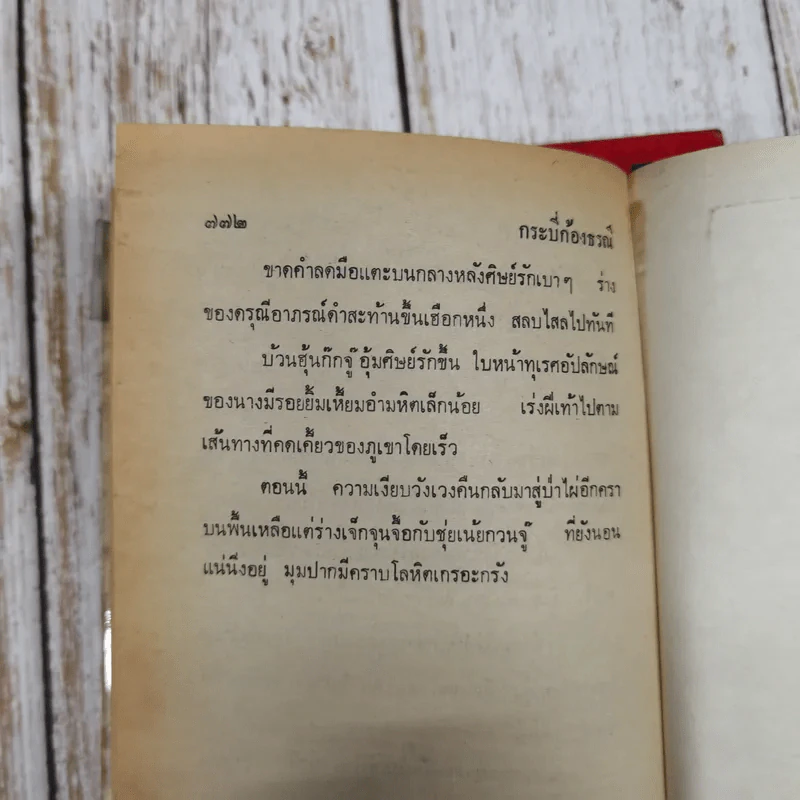 ๗๗๒
กระบี่ก้องธรณี
ขาดคำลดมือแตะบนกลางหลังศิษย์รักเบาๆ ร่าง
ของดรุณีอาภรณ์ดำสะท้านขึ้นเฮือกหนึ่ง สลบไสลไปทันที
บ้วนฮุ้นก๊กจู๊อุ้มศิษย์รักขึ้น ใบหน้าทุเรศอัปลักษณ์
ของนางมีรอยยิ้มเหี้ยมอำมหิตเล็กน้อย เร่งฝีเท้าไปตาม
เส้นทางที่คดเคี้ยวของภูเขาโดยเร็ว
ตอนนี้ ความเงียบวังเวงคืนกลับมาสู่ป่าไผ่อีกครา
บนพื้นเหลือแต่ร่างเจ็กจุนจื้อกับซุ่ยเน้ยกวนจู๊ ที่ยังนอน
แน่นิ่งอยู่ มุมปากมีคราบโลหิตเกรอะกรัง